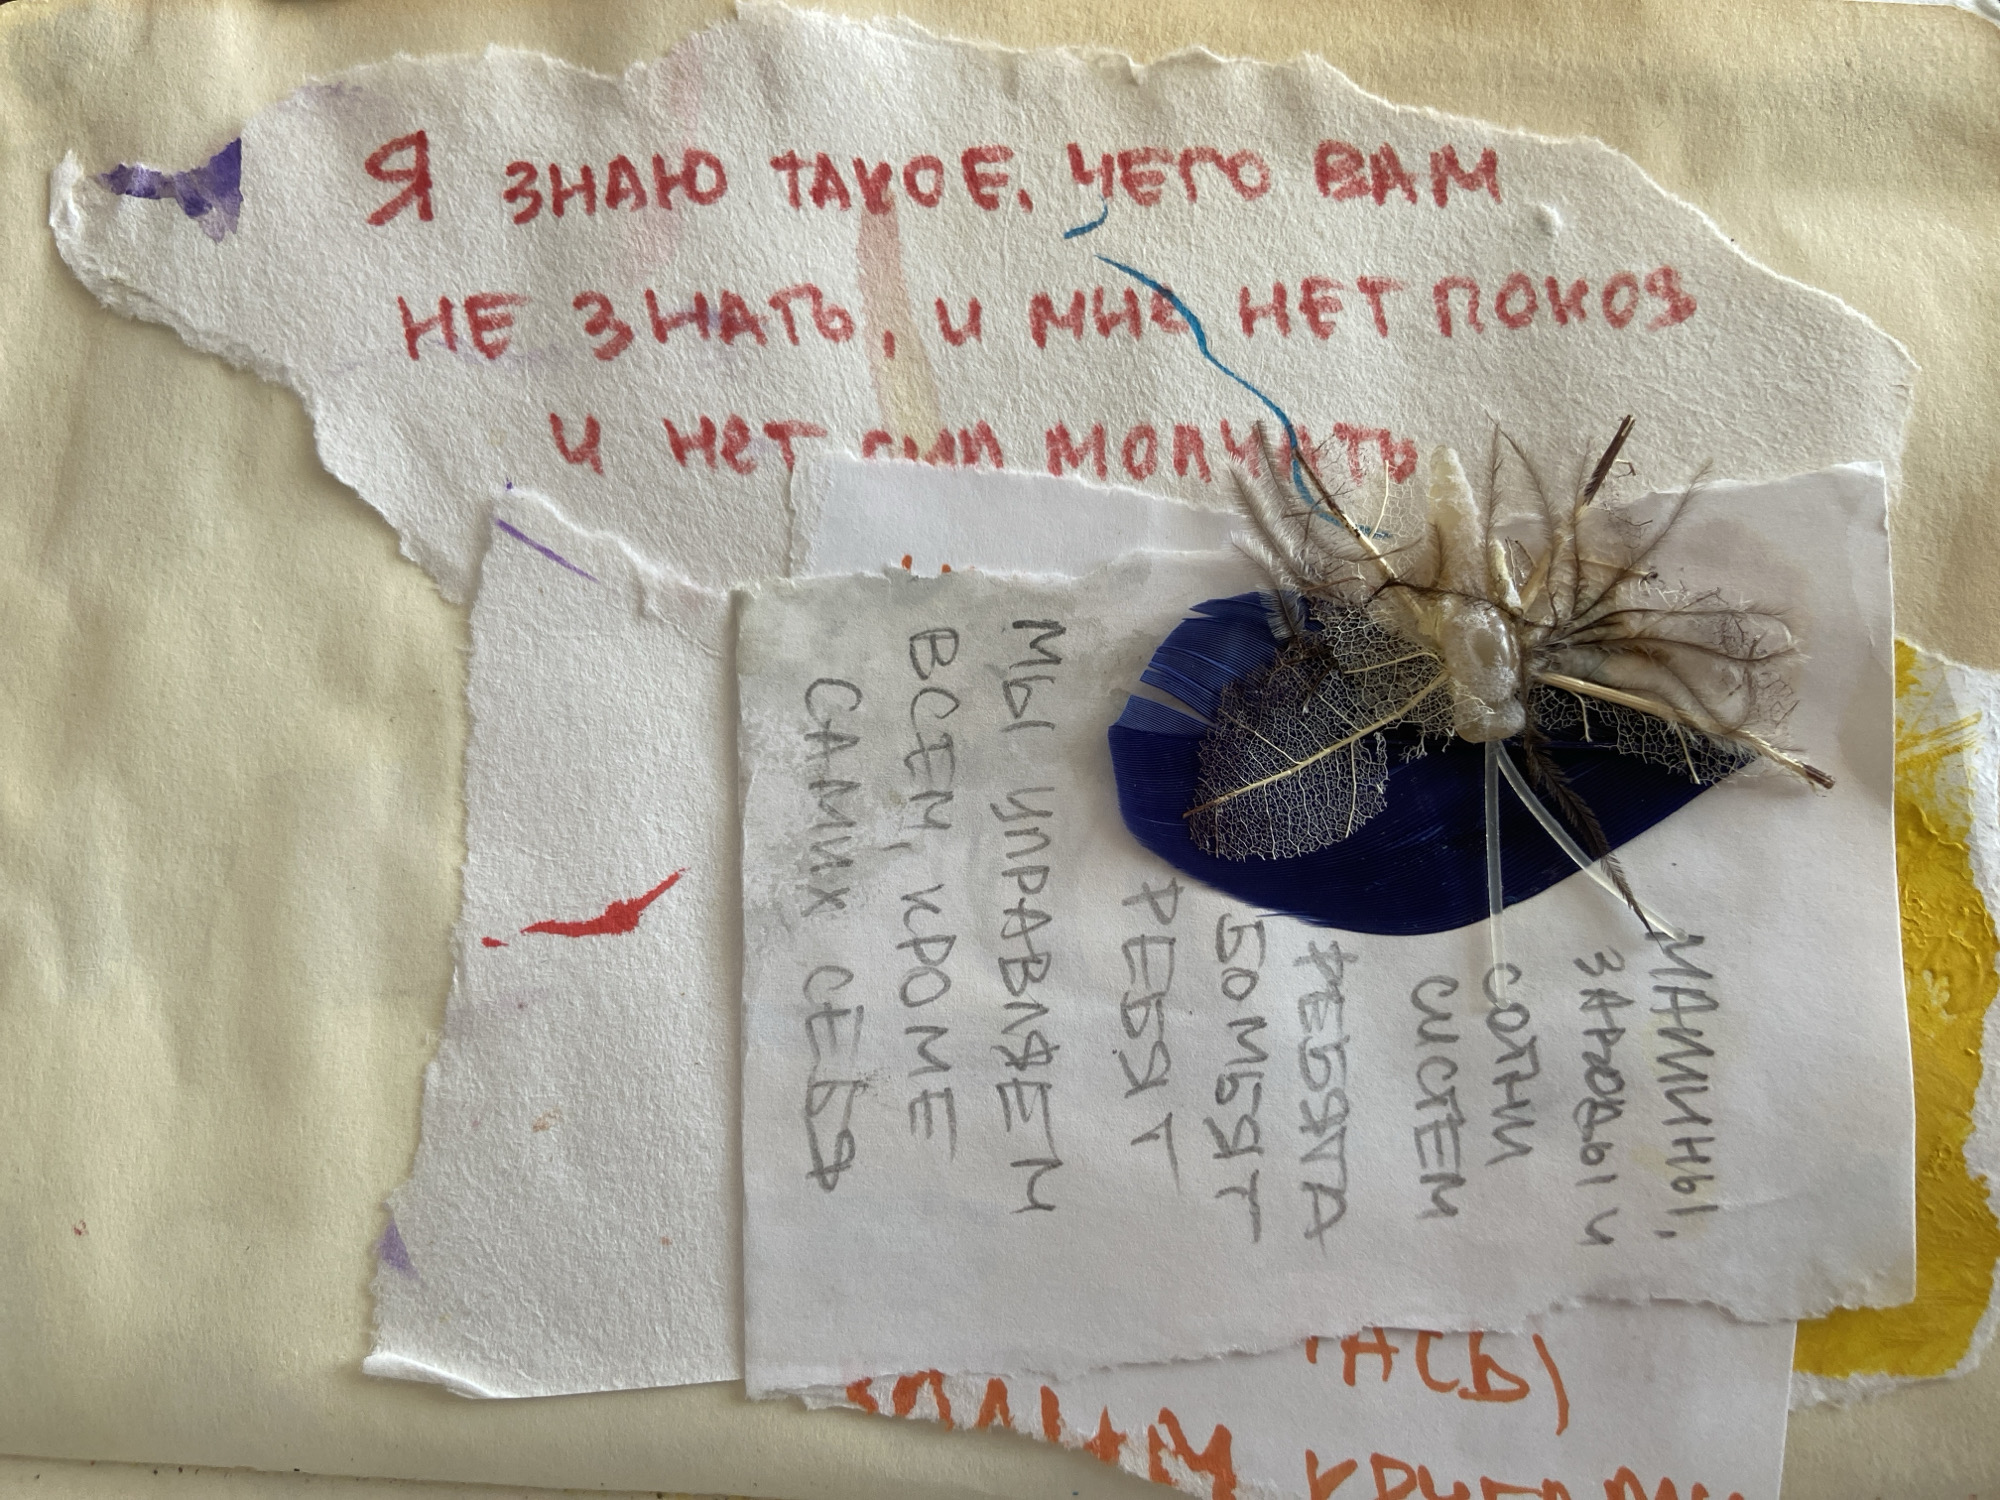 Я ЗНАЮ ТАКОЕ, ЧЕГО ВАМ
НЕ ЗНАТЬ, И МНЕ НЕТ ПОКОЯ
И НЕТ СИЛ МОЛЧАТЬ
МАШИНЫ,
ЗАВОДЫ И
СОТНИ
СИСТЕМ
РЕБЯТА
БОМБЯТ
РЕБЯТ
МЫ УПРАВЛЯЕМ
ВСЕМ, КРОМЕ
САМИХ СЕБЯ
АСЫ